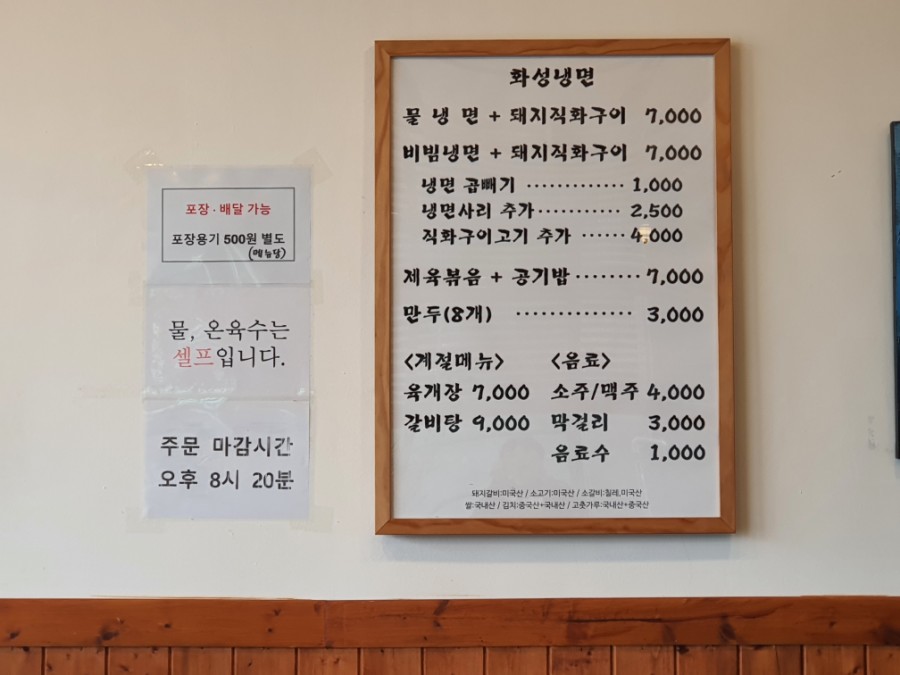 포장 · 배달 가능
포장용기 500원 별도
(메뉴당)
물, 온육수는
셀프입니다.
주문 마감시간
오후 8시 20분
화성냉면
물 냉 면 + 돼지직화구이 7,000
비빔냉면 + 돼지직화구이 7,000
냉면 곱빼기 ············· 1,000
냉면사리 추가··········· 2,500
직화구이고기 추가 ······ 4,000
제육볶음 + 공기밥········ 7,000
만두(8개) ·············· 3,000
<계절메뉴> <음료>
육개장 7,000 소주/맥주 4,000
갈비탕 9,000 막걸리 3,000
음료수 1,000
돼지갈비:미국산 / 소고기:미국산 / 소갈비:칠레,미국산
쌀:국내산 / 김치:중국산+국내산 / 고춧가루:국내산+중국산